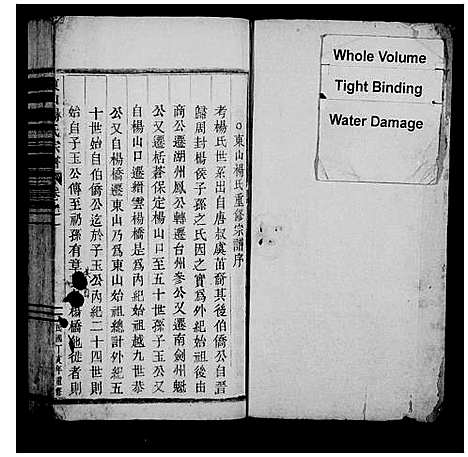 Whole Volume
Tight Binding
Water Damage
東山楊氏重修宗譜序
考楊氏世系出自唐叔虞苗裔其後伯僑公自晋
歸周封楊侯子孫之氏因之實為外紀始祖後由
商公遷湖州鳳公轉遷台州參公又遷南劍州魁
公又遷栝蒼保定楊山口至五十世孫子玉公又
自楊山口遷縉雲楊橋是為內紀始祖越九世恭
公又自楊橋遷東山乃為東山始祖總計外紀五
十世始自伯僑公迄於子玉公內紀二十四世則
始自子玉公傳至礽孫有章
楊橋也徙者則